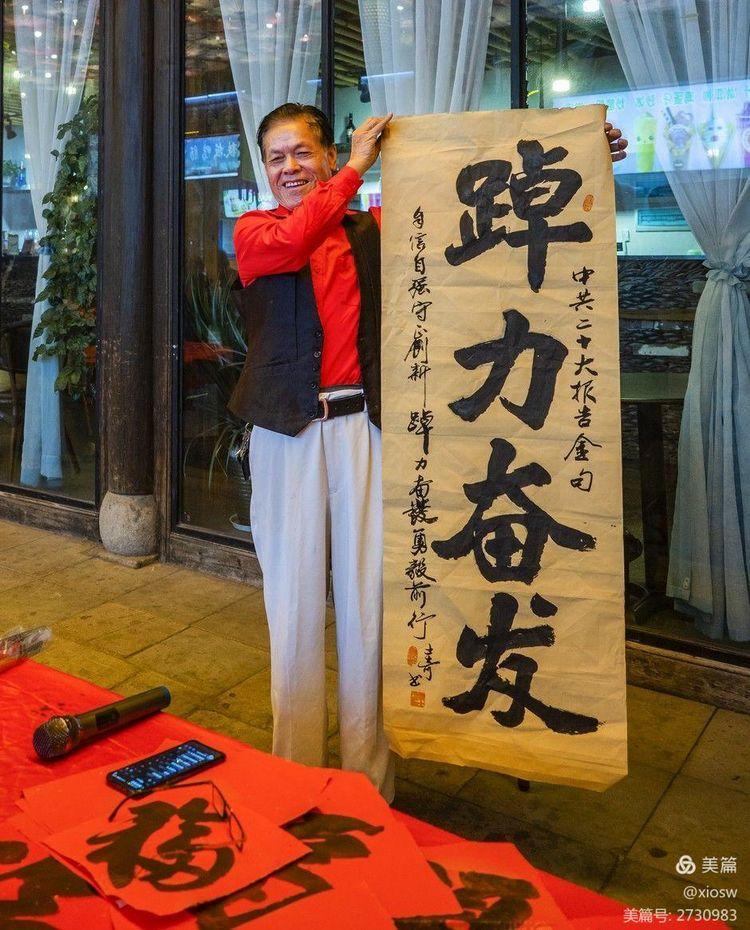 中共二十大报告金句
踔力奋发
自信自强守正创新踔力奋發勇毅前行
青书
福
美篇
@xiosw
美篇号: 2730983